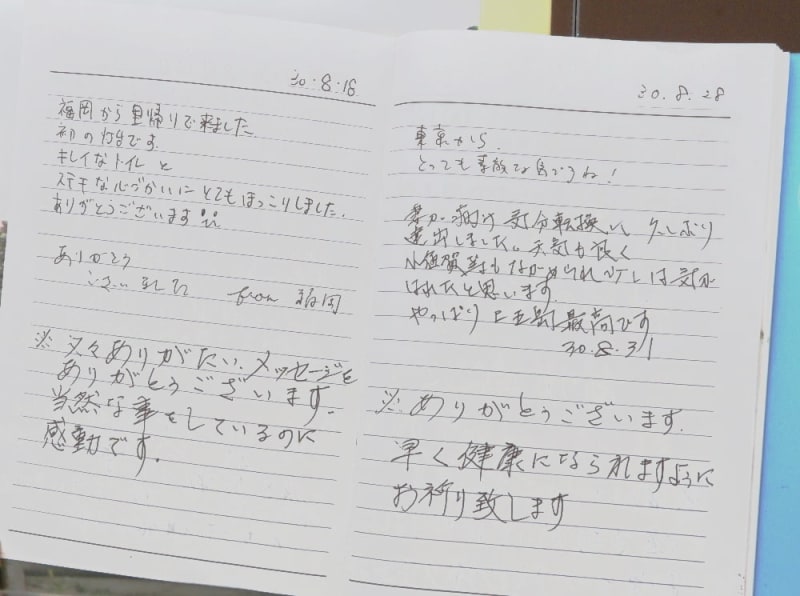 30.8.16
福岡から里帰りで来ました
初の灯台です.
キレイなトイレ と
ステキな心づかいにとてもほっこりしました.
ありがとうございます
ありがとう
ございました from 福岡
※ 又々ありがたい、メッセージを
ありがとうございます.
当然な事をしているのに
感動です.
30.8.28
東京から.
とっても素敵な島ですね!
気分転換に 久しぶり
遠出しました。天気が良く
小値賀島もながめられ 少しは気が
はれたと思います
やっぱり上五島最高です
30.8.31
※ ありがとうございます.
早く健康になられますように
お祈り致します